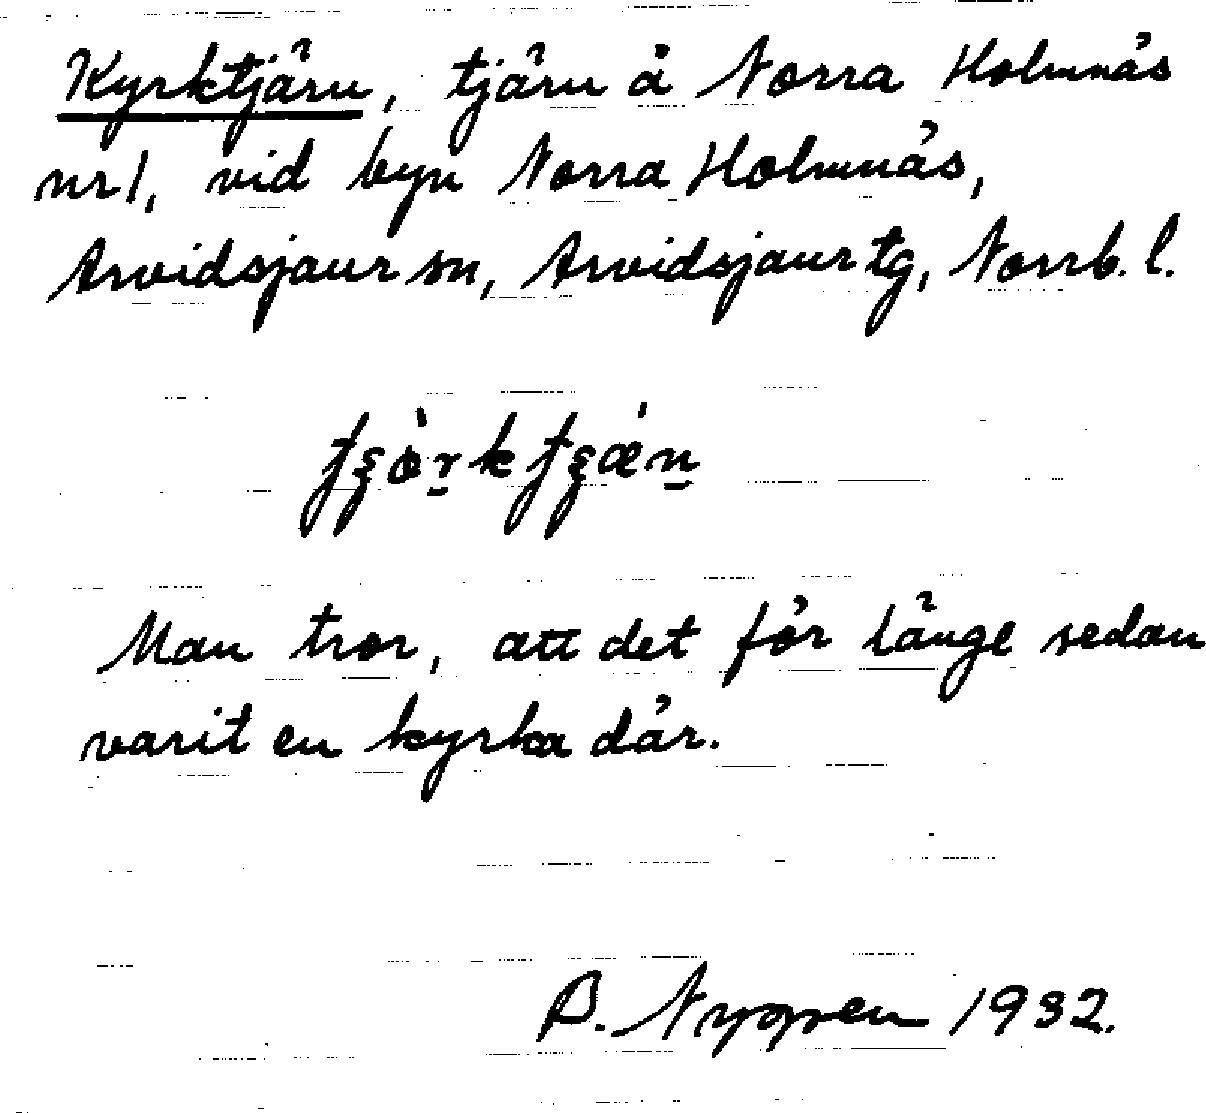 Kyrktjärn, tjärn å Norra Holmnäs
nr 1, vid byn Norra Holmnäs,
Arvidsjaur sn, Arvidsjaur tg, Norrb. l.
Man tror, att det för länge sedan
varit en kyrka där.
B. Nygren 1932.